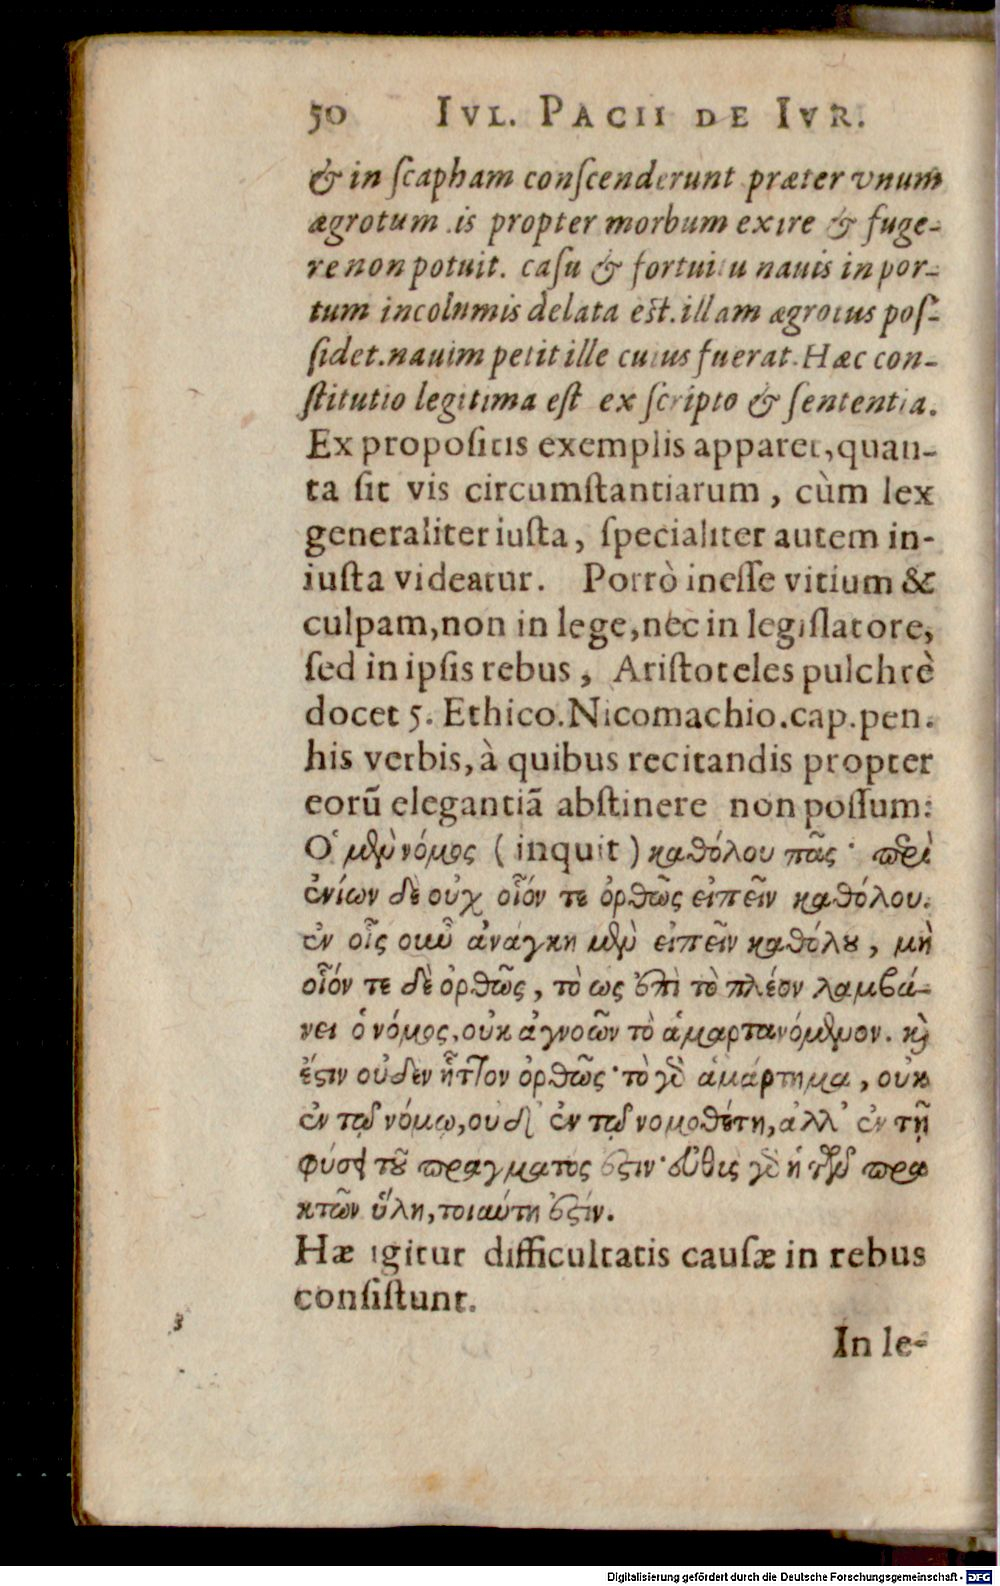 50 IVL. PACII DE IVR.
& in ſcapham conſcenderunt præter vnum
ægrotum .is propter morbum exire & fuge-
re non potuit. caſu & fortuitu nauis in por-
tum incolumis delata eſt. illam ægrotus poſ-
ſidet. nauim petit ille cuius fuerat. Hæc con-
ſtitutio legitima eſt ex ſcripto & ſententia.
Ex propoſitis exemplis apparet, quan-
ta ſit vis circumſtantiarum, cùm lex
generaliter iuſta, ſpecialiter autem in-
iuſta videatur. Porrò ineſſe vitium &
culpam, non in lege, nec in legiſlatore,
ſed in ipſis rebus, Ariſtoteles pulchrè
docet 5. Ethico. Nicomachio. cap. pen.
his verbis, à quibus recitandis propter
eorū elegantiā abſtinere non poſſum:
Ὁ μὲν νόμος (inquit) καθόλου πᾶς· περὶ
ἐνίων δὲ οὐχ οἷόν τε ὀρθῶς εἰπεῖν καθόλου.
ἐν οἷς οὖν ἀνάγκη μὲν εἰπεῖν καθόλȣ, μὴ
οἷόν τε δὲ ὀρθῶς, τὸ ως ἐπὶ τὸ πλέον λαμβά-
νει ὁ νόμος, οὐκ ἀγνοῶν τὸ ἁμαρτανόμενον. καὶ
ἔςιν οὐδὲν ἧττον ὀρθῶς· τὸ γὰρ ἁμάρτημα, οὐκ
ἐν τῷ νόμῳ, οὐδ' ἐν τῷ νομοθέτῃ, ἀλλ' ἐν τῇ
φύσει τȣ͂ πράγματος ἐςιν· εὐθὺς γὰρ ἡ τῶν πρα
κτῶν ὕλη, τοιαύτη ἐςίν.
Hæ igitur difficultatis cauſæ in rebus
conſiſtunt.
In le-
Digitalisierung gefördert durch die Deutsche Forschungsgemeinschaft - DFG